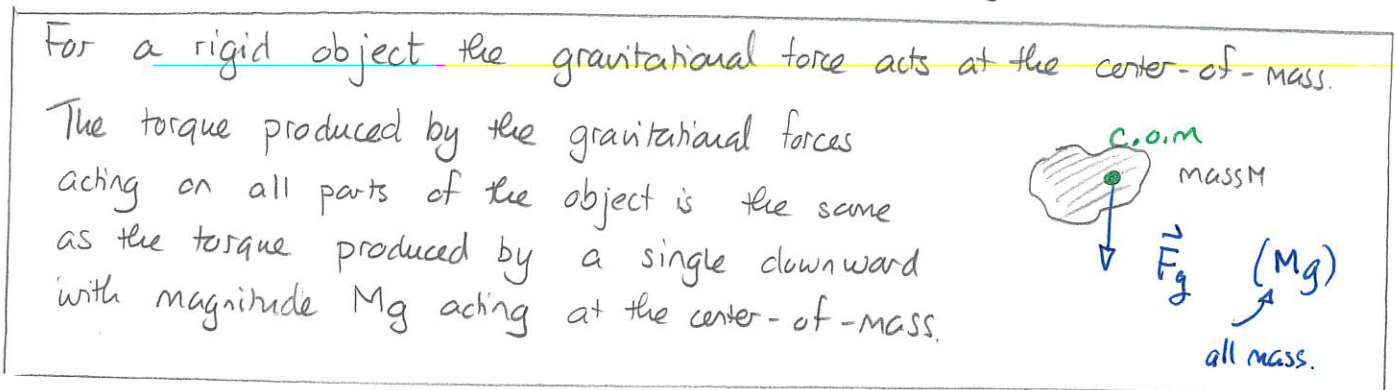 For a rigid object the gravitational force acts at the center-of-mass.
The torque produced by the gravitational forces
acting on all parts of the object is the same
as the torque produced by a single downward
with magnitude Mg acting at the center-of-mass.
c.o.m
mass M
F⃗g (Mg)
all mass.